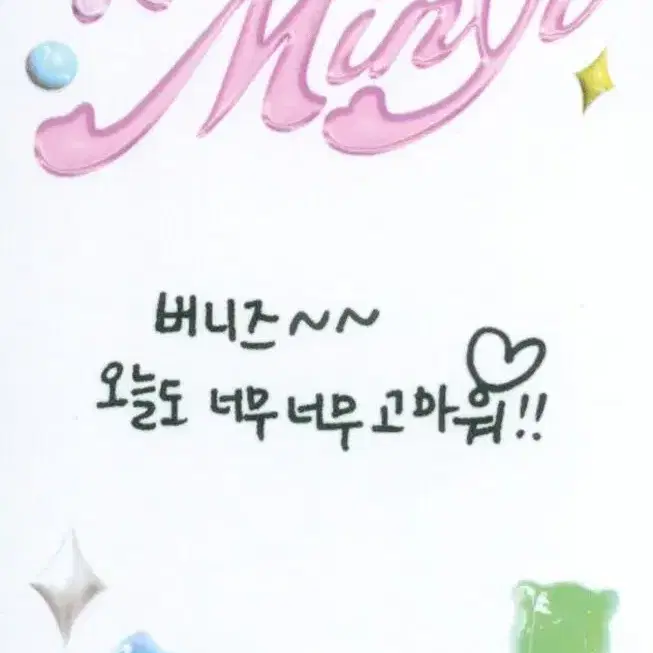 Minji
버니즈~~
오늘도 너무너무 고마워!!